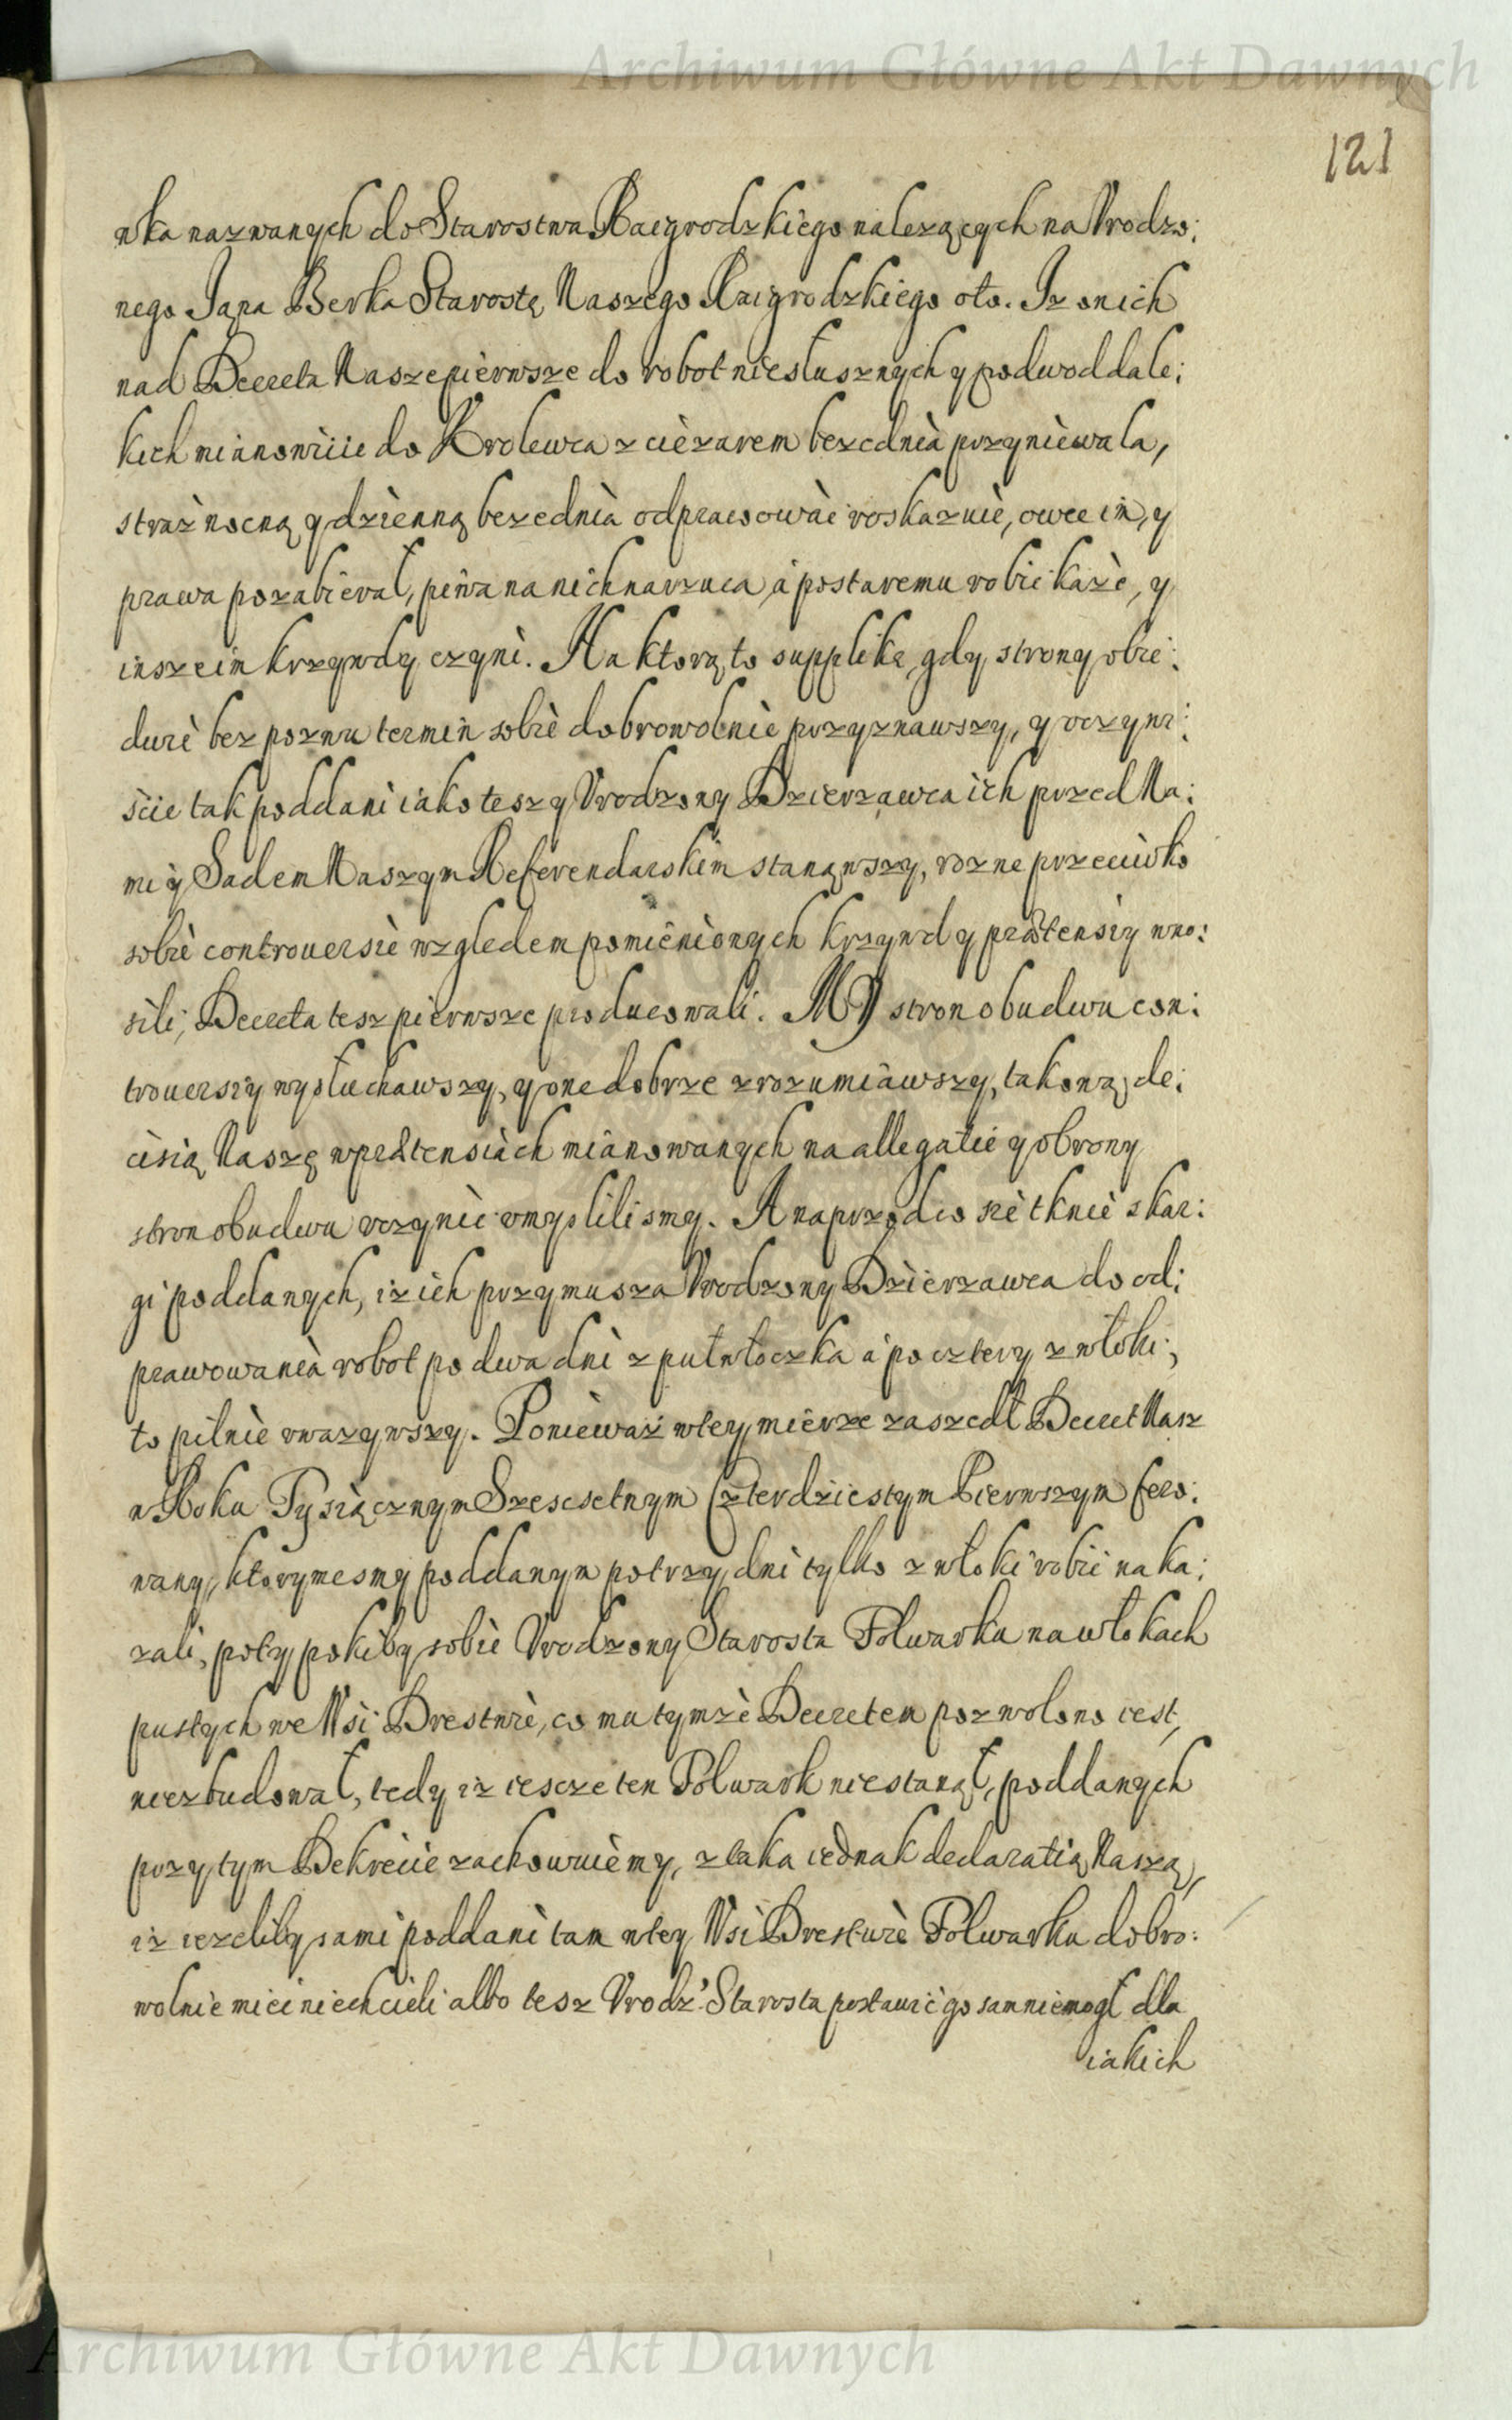 Archiwum Główne Akt Dawnych
121
wka nazwanych do Starostwa Raigrodzkiego nalezących na Vrodzo:
nego Jana Berka Starostę Naszego Raigrodzkiego oto. Iz onich
nad Decreta Nasze pierwsze do robot niesłusznych y podwod dale:
kich mianowicie do Krolewca z ciężarem bezednia przyniewala,
straż nocną y dzienną bezednia odpracować roskazuie, owce im, y
prawa pozabierał, piwa na nich narzuca, á postaremu robić każe, y
insze im krzywdy czyni. Na ktorą to supplikę gdy strony obie:
dwie bez pozwu termin sobie dobrowolnie przyznawszy, y oczywi:
ście tak poddani iako tesz y Vrodzony Dzierzawca ich przed Na:
mi y Sądem Naszym Referendarskim stanąwszy, rozne przeciwko
sobie controuersie względem pomienionych krzywd y prætensiy wno:
sili, Decreta tesz pierwsze producowali. MY stron obudwu con:
trouersiy wysłuchawszy, y one dobrze zrozumiawszy, takową de:
cisią Naszę w prætensiach mianowanych na allegatie y obrony
stron obudwu uczynić umyslilismy. A naprzod co się tknie skar:
gi poddanych, iz ich przymusza Vrodzony Dzierzawca do od:
prawowania robot po dwa dni z pułwłoczka á po cztery z włoki;
to pilnie uwazywszy. Ponieważ w tey mierze zaszedł Decret Nasz
w Roku Tysiącznym Szescsetnym Czterdziestym Pierwszym fero:
wany, ktorymesmy poddanym po trzy dni tylko z włoki robić naka:
zali, poty pokiby sobie Vrodzony Starosta Folwarku na włokach
pustych we Wsi Drestwie, co mu tymże Decretem pozwolono iest,
niezbudował, tedy iz iescze ten Folwark niestanął, poddanych
przy tym Dekrecie zachowuiemy, z taką iednak declaratią Naszą,
iz iezeliby sami poddani tam w tey Wsi Drestwie Folwarku dobro:
wolnie mieć niechcieli albo tesz Vrodz: Starosta postawić go sam niemogł dla
iakich
Archiwum Główne Akt Dawnych